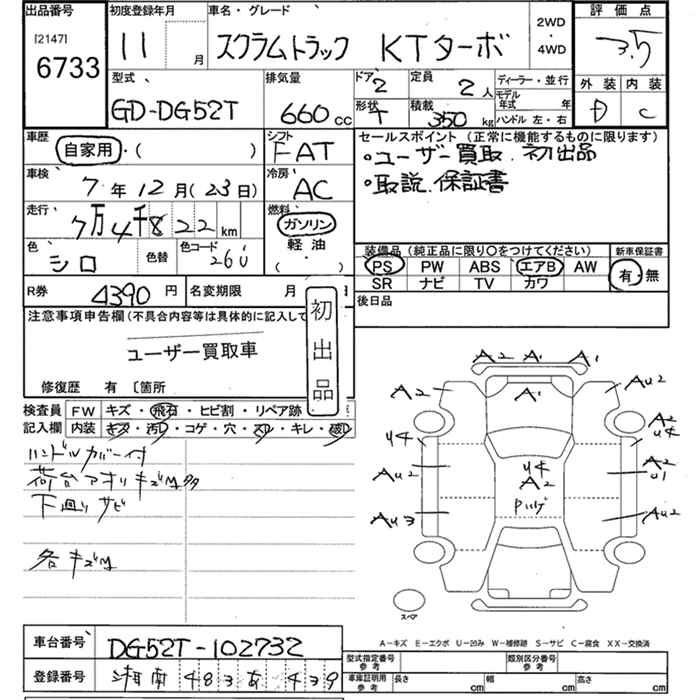 出品番号 初度登録年月 車名・グレード 2WD・4WD 評価点
[2147] 6733 11 月 スクラムトラック KTターボ 3.5
型式 排気量 ドア 定員 ディーラー・並行 外装 内装
GD-DG52T 660 cc 2 2人 モデル年式 年 D C
形状 T 積載 350 kg ハンドル 左・右
車歴 シフト セールスポイント (正常に機能するものに限ります)
自家用・( ) FAT ・ユーザー買取 初出品
車検 7年12月(23日) 冷房 AC ・取説.保証書
走行 7万4千822km 燃料 ガソリン
軽油・( )
色 シロ 色替 色コード 26U 装備品 (純正品に限り○をつけてください) 新車保証書
PS PW ABS エアB AW 有・無
SR ナビ TV カワ
R券 4390円 名変期限 月 後日品
注意事項申告欄(不具合内容等は具体的に記入して 初出品
ユーザー買取車
修復歴 有 〔箇所
検査員 FW キズ・飛石・ヒビ割・リペア跡
記入欄 内装 キズ・汚レ・コゲ・穴・スレ・キレ・破レ
ハンドルカバー付
荷台アオリキズ凹多
下廻りサビ
各キズ凹
A2 A1 A1
A2 A1 AU2
U4 A2 U4
AU2 U4 A2 A2 U1
AU3 AU2
スペア
A-キズ E-エクボ U-凹み W-補修跡 S-サビ C-腐食 XX-交換済
車台番号 DG52T-102732
型式指定番号 参考 類別区分番号 参考
登録番号 湘南 483あ 439
車庫証明用 参考 長さ cm 幅 cm 高さ cm